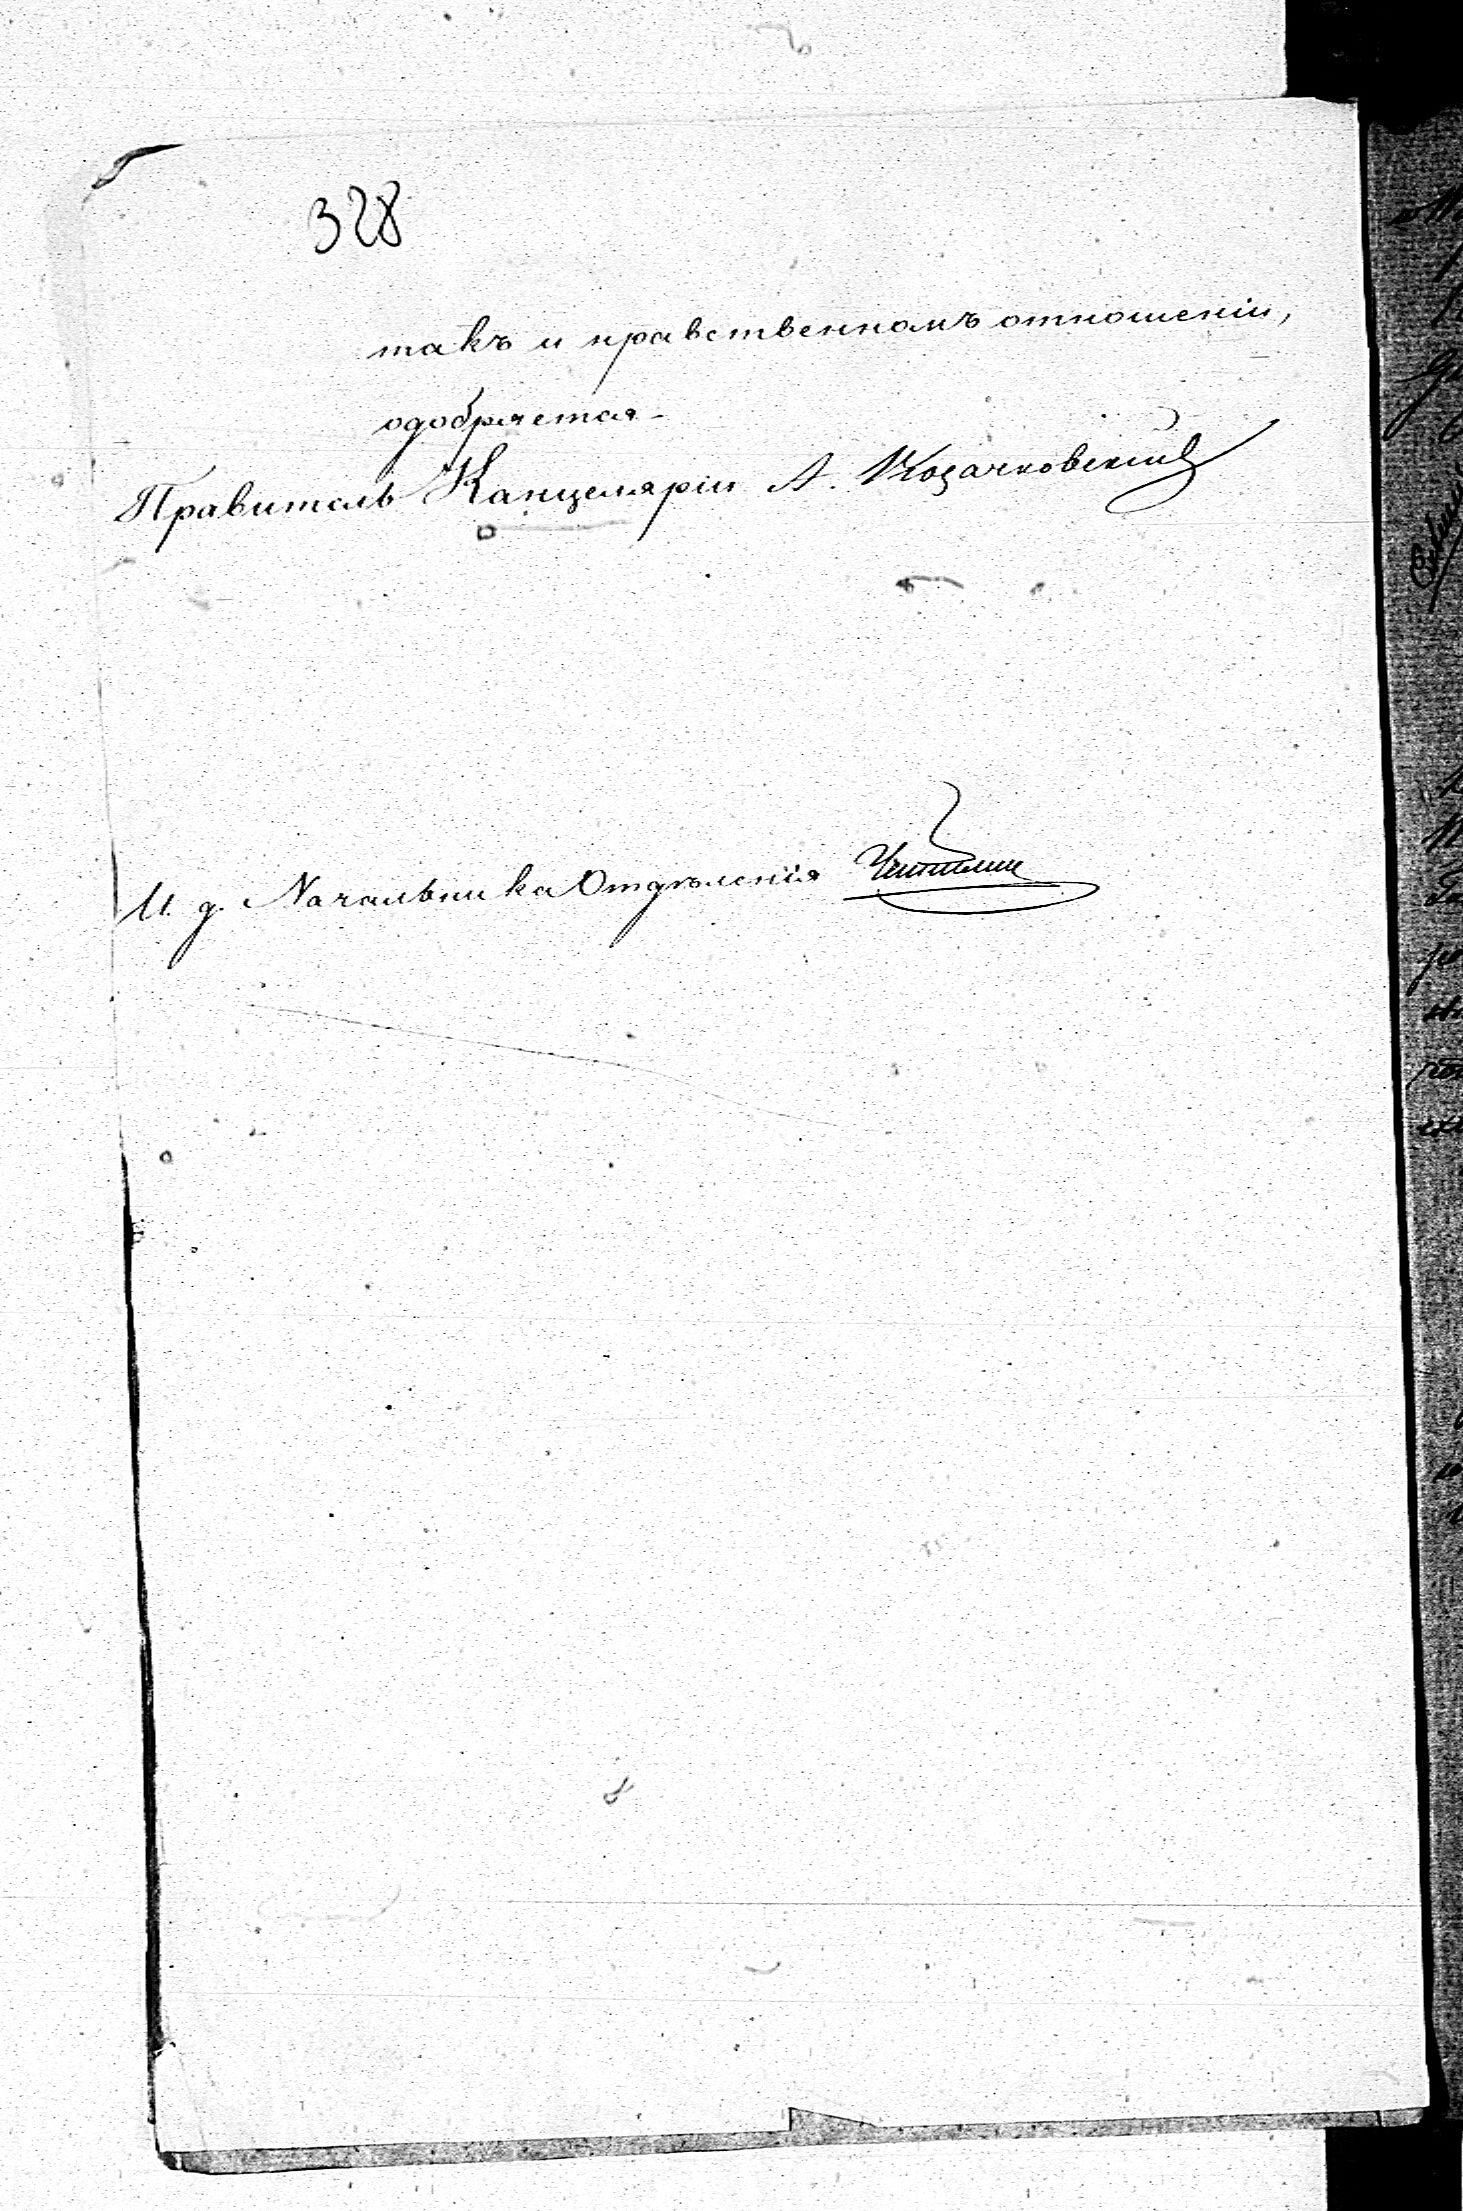 328
такъ и нравственномъ отношеніи,
одобряется.
Правитель Канцеляріи А. Козачковскій
И. д. Начальника Отдѣленія